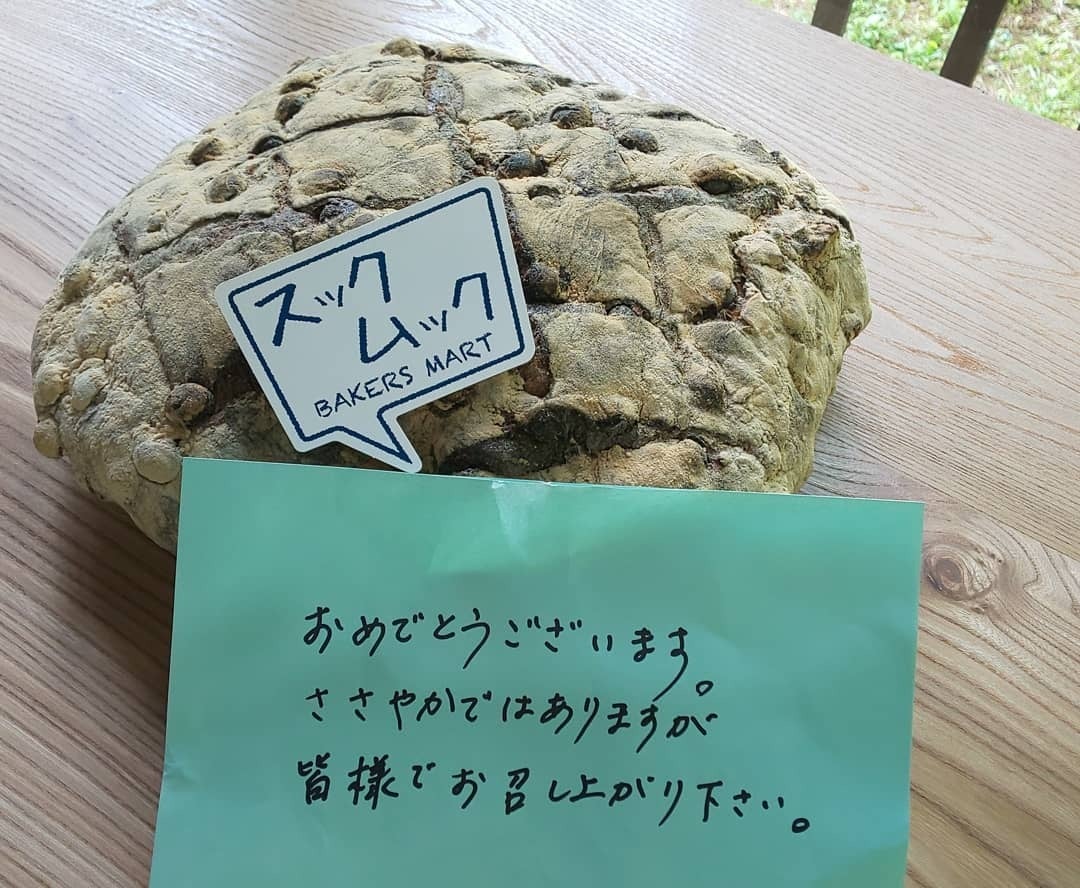 スック
ムック
BAKERS MART
おめでとうございます。
ささやかではありますが
皆様でお召し上がり下さい。